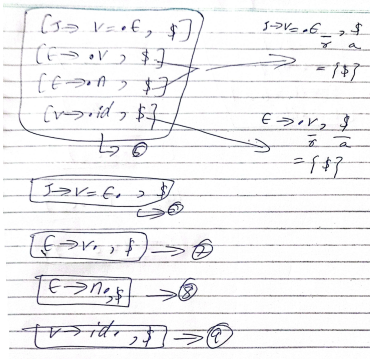 [S→ V = .E, $]
[E→ .V, $]
[E→ .n, $]
[V→ .id, $]
↳ ⑥
S→V= .E, $
r a
= {$}
E→ .V, $
r a
= {$}
S→V= E. , $
↳⑥
E→V. , $ → ⑦
E→n. , $ → ⑧
V→ id. , $ → ⑨